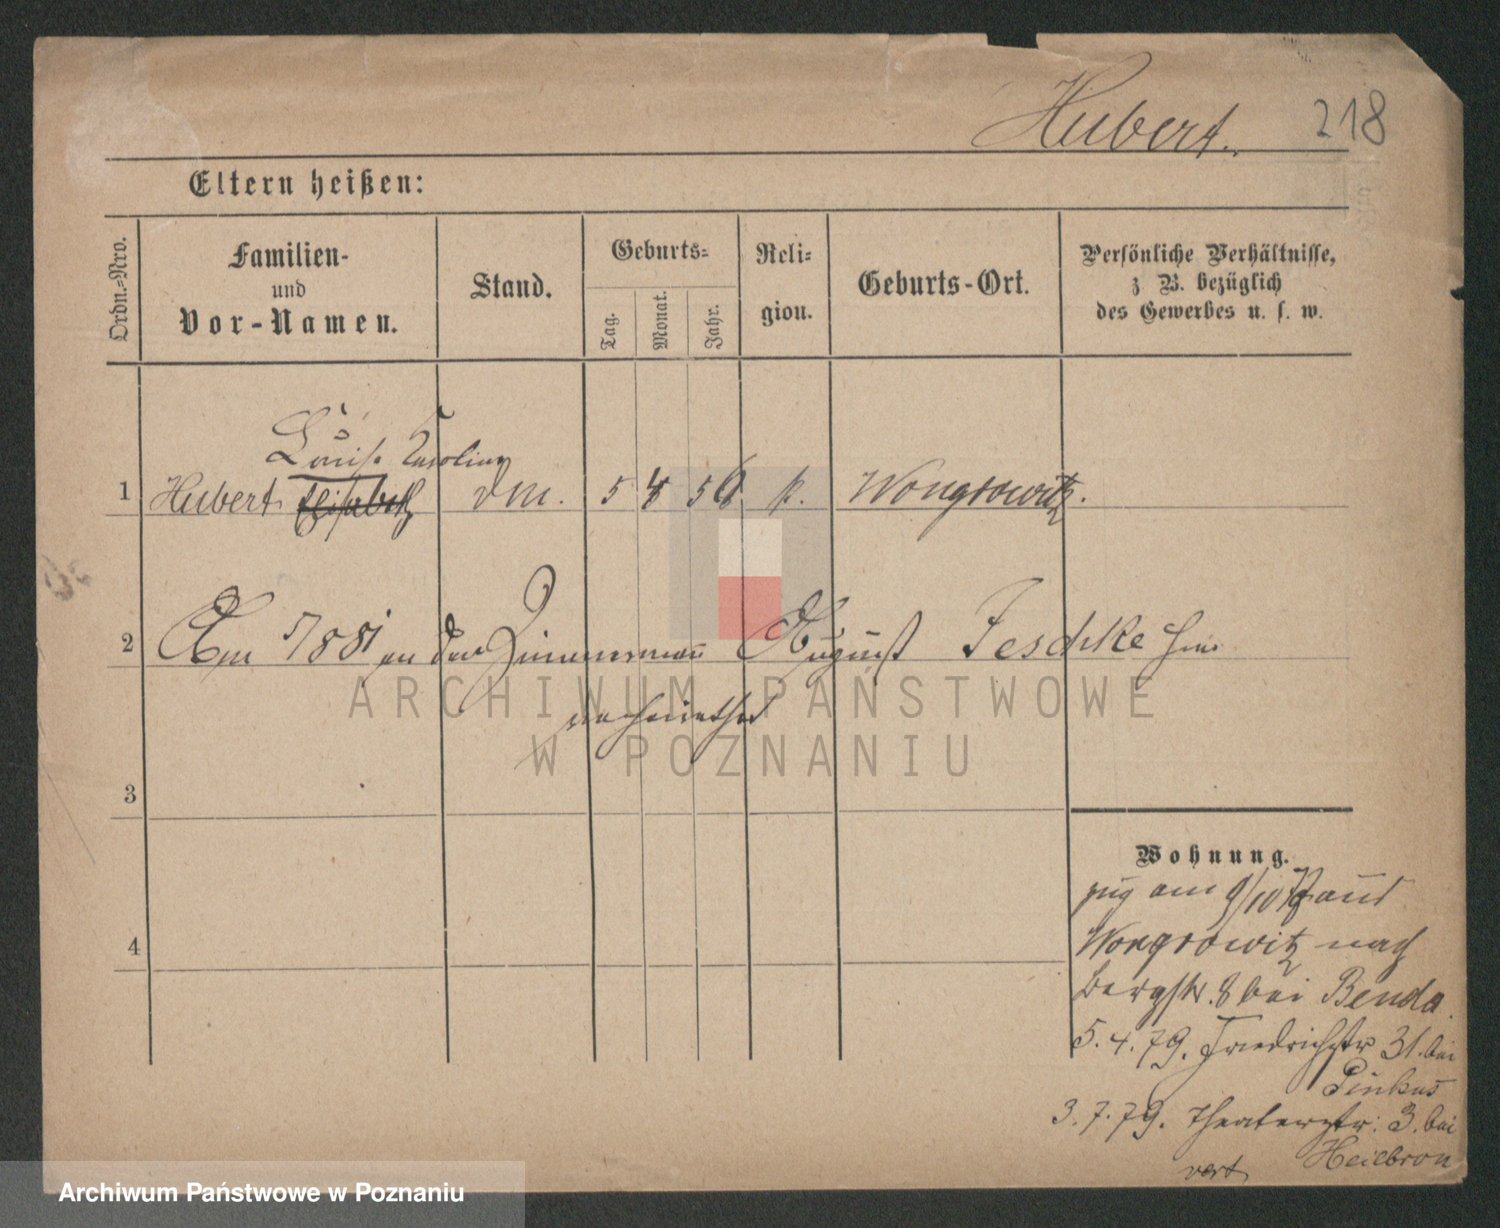 Hubert. 218
Eltern heißen:
Ordn.=Nro.
Familien-
und
Vor-Namen.
Stand.
Geburts=
Tag.
Monat.
Jahr.
Reli=
gion.
Geburts-Ort.
Persönliche Verhältnisse,
z B. bezüglich
des Gewerbes u. s. w.
Louise Karoline
1 Hubert Elisabeth 5 56 k. Wongrowitz.
2 Am 1881 an den Zimmermann August Jeschke hier
verheirathet
3
4
Wohnung.
zug am 9/10 78 aus
Wongrowitz nach
Bergstr. 8 bei Benda.
5.4.79. Friedrichstr 31. bei
Pinkus
3.7.79. Theaterstr: 3. bei
Heilbron
vert
ARCHIWUM PAŃSTWOWE
W POZNANIU
Archiwum Państwowe w Poznaniu